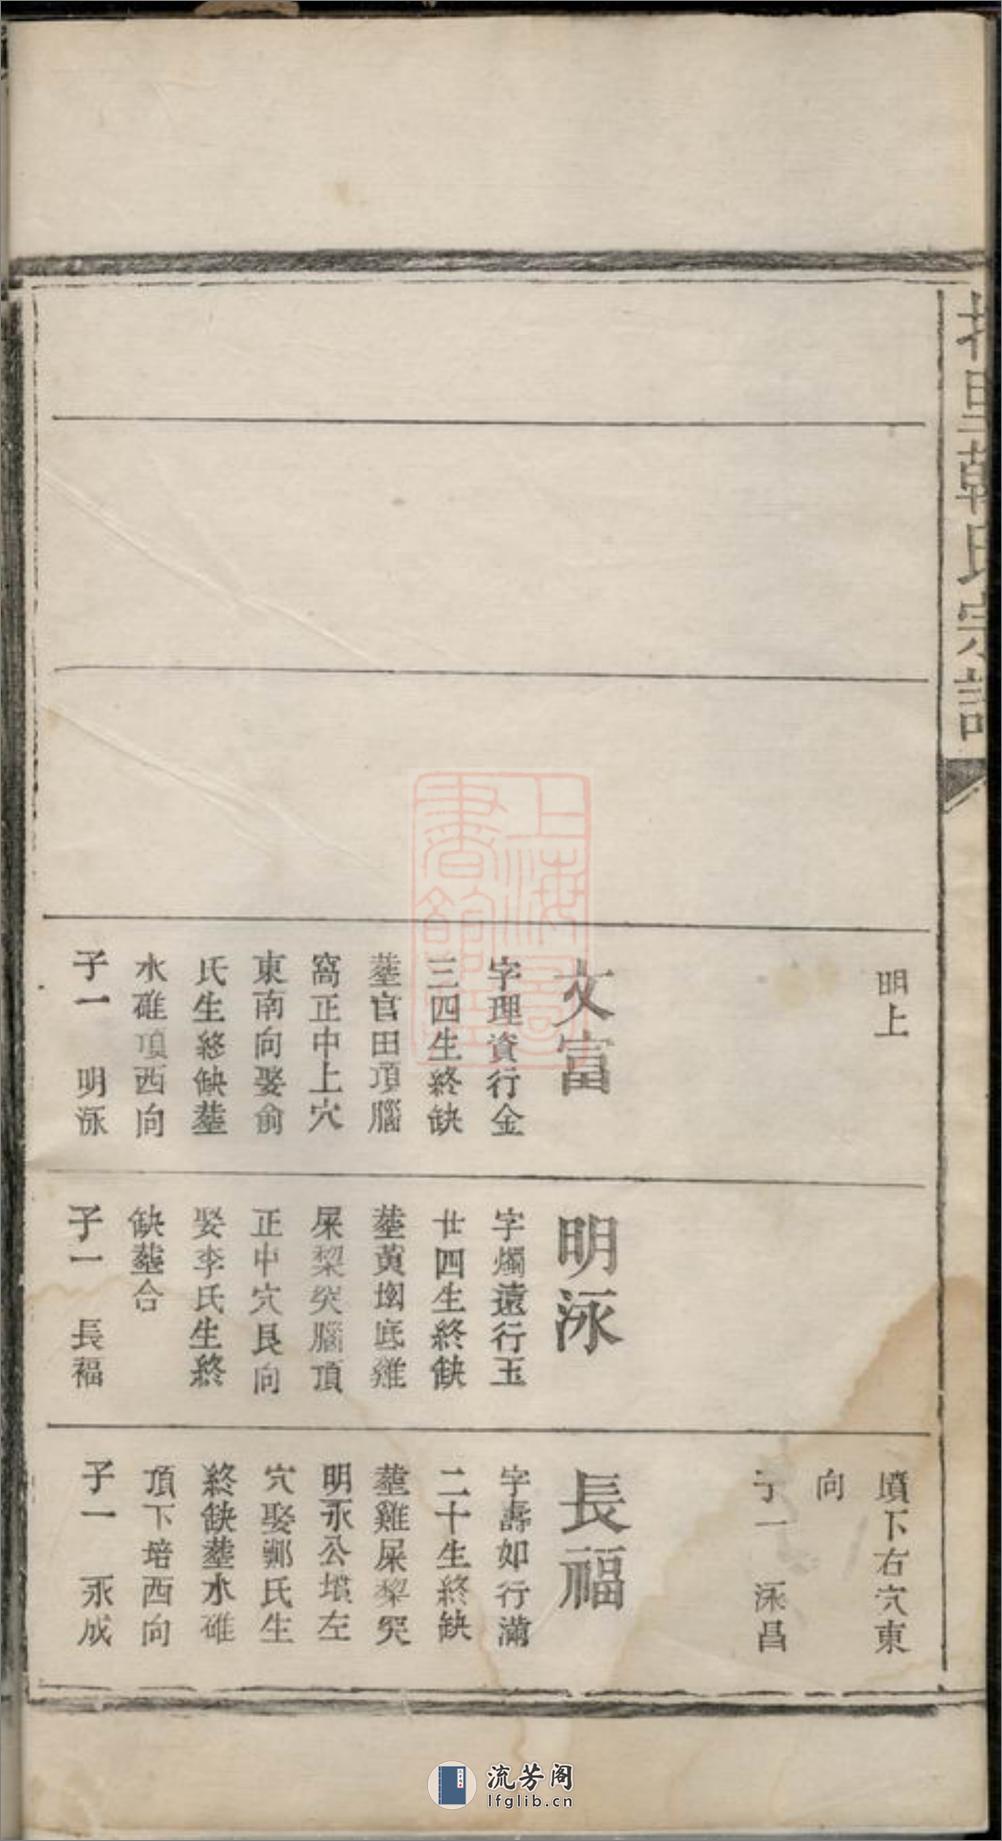 明上
文富
字理資行金
三四生終缺
塟官田項腦
窩正中上穴
東南向娶俞
氏生終缺塟
水碓項西向
子一 明泳
明泳
字燭遠行玉
廿四生終缺
塟黄㘭底雞
屎棃突腦頂
正中穴艮向
娶李氏生終
缺塟合
子一 長福
墳下右穴東
向
子一 泳昌
長福
字壽如行滿
二十生終缺
塟雞屎棃突
明永公墳左
穴娶鄭氏生
終缺塟水碓
頂下培西向
子一 永成
上海
書館
流芳阁
lfglib.cn